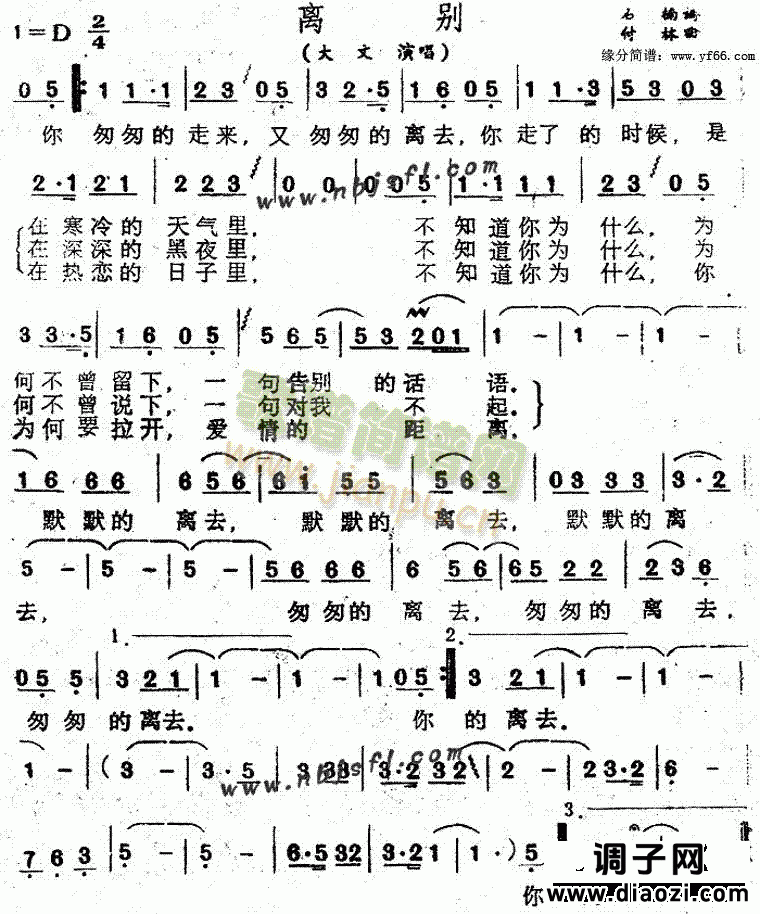 离 别
1=D 2/4
(大 文 演唱)
付 林 曲
缘分简谱: www.yf66.com
0 5 1 1 1·1 2 3 0 5 3 2·5 1 6 0 5 1 1·3 5 3 0 3
你 匆匆的 走来, 又 匆匆的 离去, 你 走了 的 时候, 是
2·1 2 1 2 2 3 0 0 0 0 5 1·1 1 1 2 3 0 5
www.nbjsfl.com
在 寒冷的 天气里, 不 知道你为 什么, 为
在 深深的 黑夜里, 不 知道你为 什么, 为
在 热恋的 日子里, 不 知道你为 什么, 你
3 3·5 1 6 0 5 5 6 5 5 5 3 2 0 1 1 - 1 - 1 -
何不曾留下, 一 句告别 的话 语.
何不曾说下, 一 句对我 不 起.
为何要拉开, 爱 情的 距 离.
歌谱简谱网
www.jianpu.cn
1 6 6 6 6 5 6 6 1 5 5 5 6 3 0 3 3 3 3·2
默默的 离去, 默默的 离去, 默默的离
5 - 5 - 5 - 5 6 6 6 6 5 6 6 5 2 2 2 3 6
去, 匆匆的 离去, 匆匆的离去,
1. 2.
0 5 5 3 2 1 1 - 1 - 1 - 1 0 5 3 2 1 1 - 1 -
匆匆 的离去. 你 的 离去.
1 - (3 - 3·5 3 3 3 3·2 3 2 2 - 2 3·2 6 -
www.nbjsfl.com
3.
7 6 3 5 - 5 - 6·5 3 2 3·2 1 1 ·) 5
你
调子网
www.diaozi.com